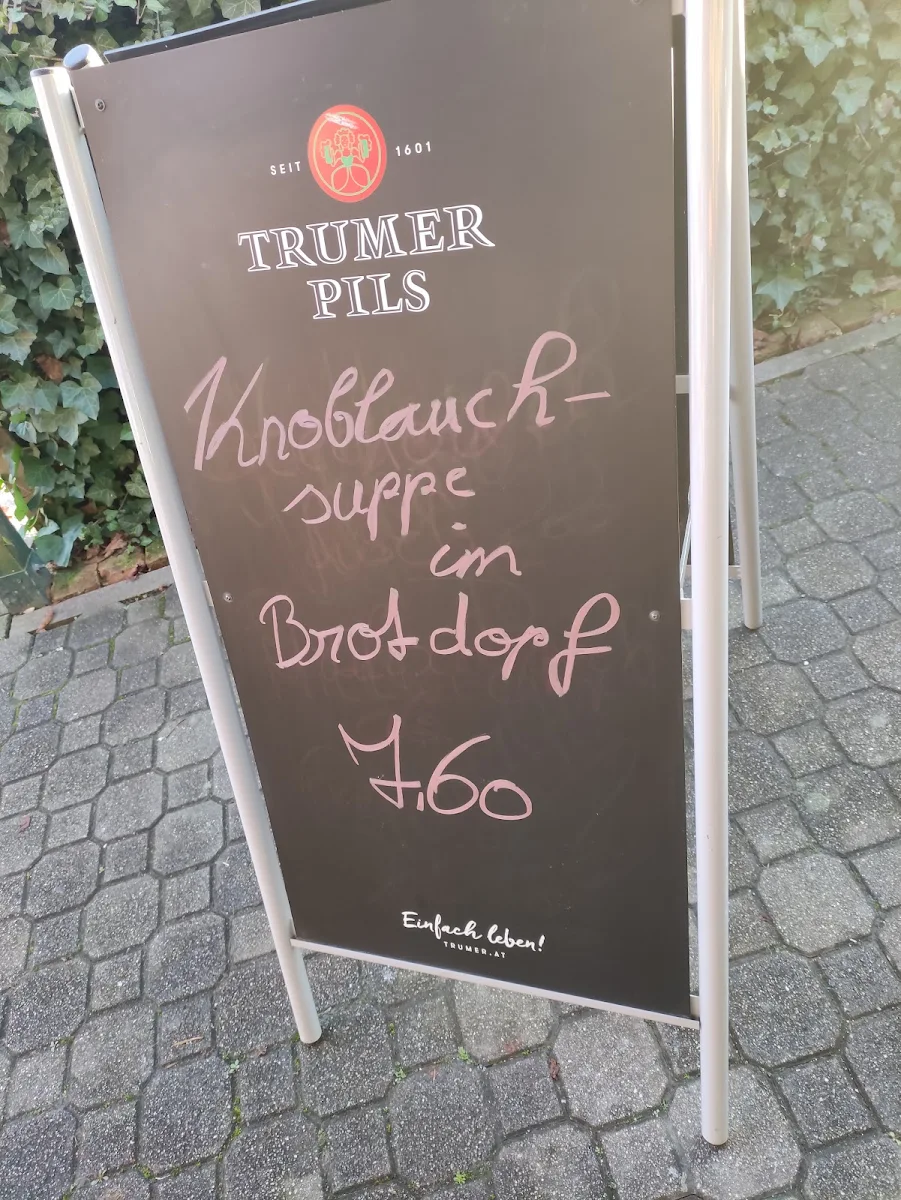 SEIT 1601
TRUMER
PILS
Knoblauch-
suppe
im
Brotdopf
7,60
Einfach leben!
TRUMER.AT